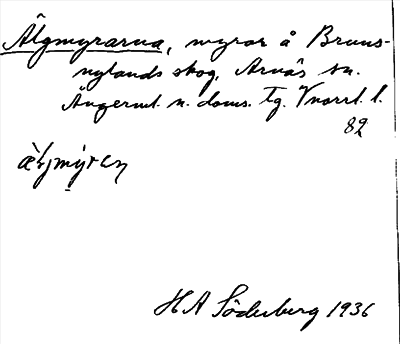 Älgmyrarna, myrar å Bruns-
nylands skog, Arnäs sn.
Ångerml. n. doms. Tg. Vnorrl. l.
82
H A Söderberg 1936